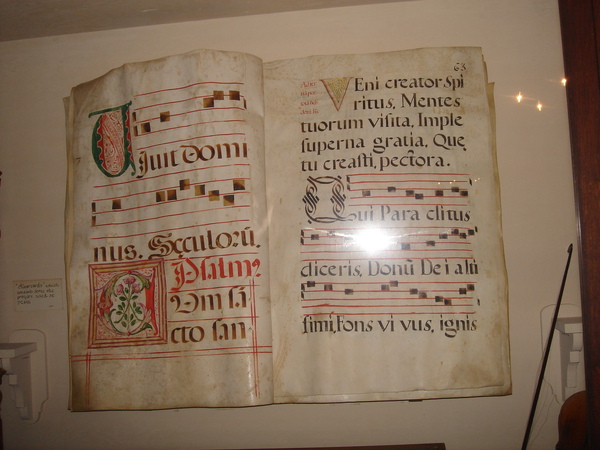 Vivit domi
nus. Sęculorũ.
Psalmꝰ
Cum sã
cto san-
63
VEni creator Spi
ritus, Mentes
tuorum visita, Imple
superna gratia, Que
tu creasti, pectora.
Qui Para clitus
diceris, Donũ De i alti
simi, Fons vi vus, ignis